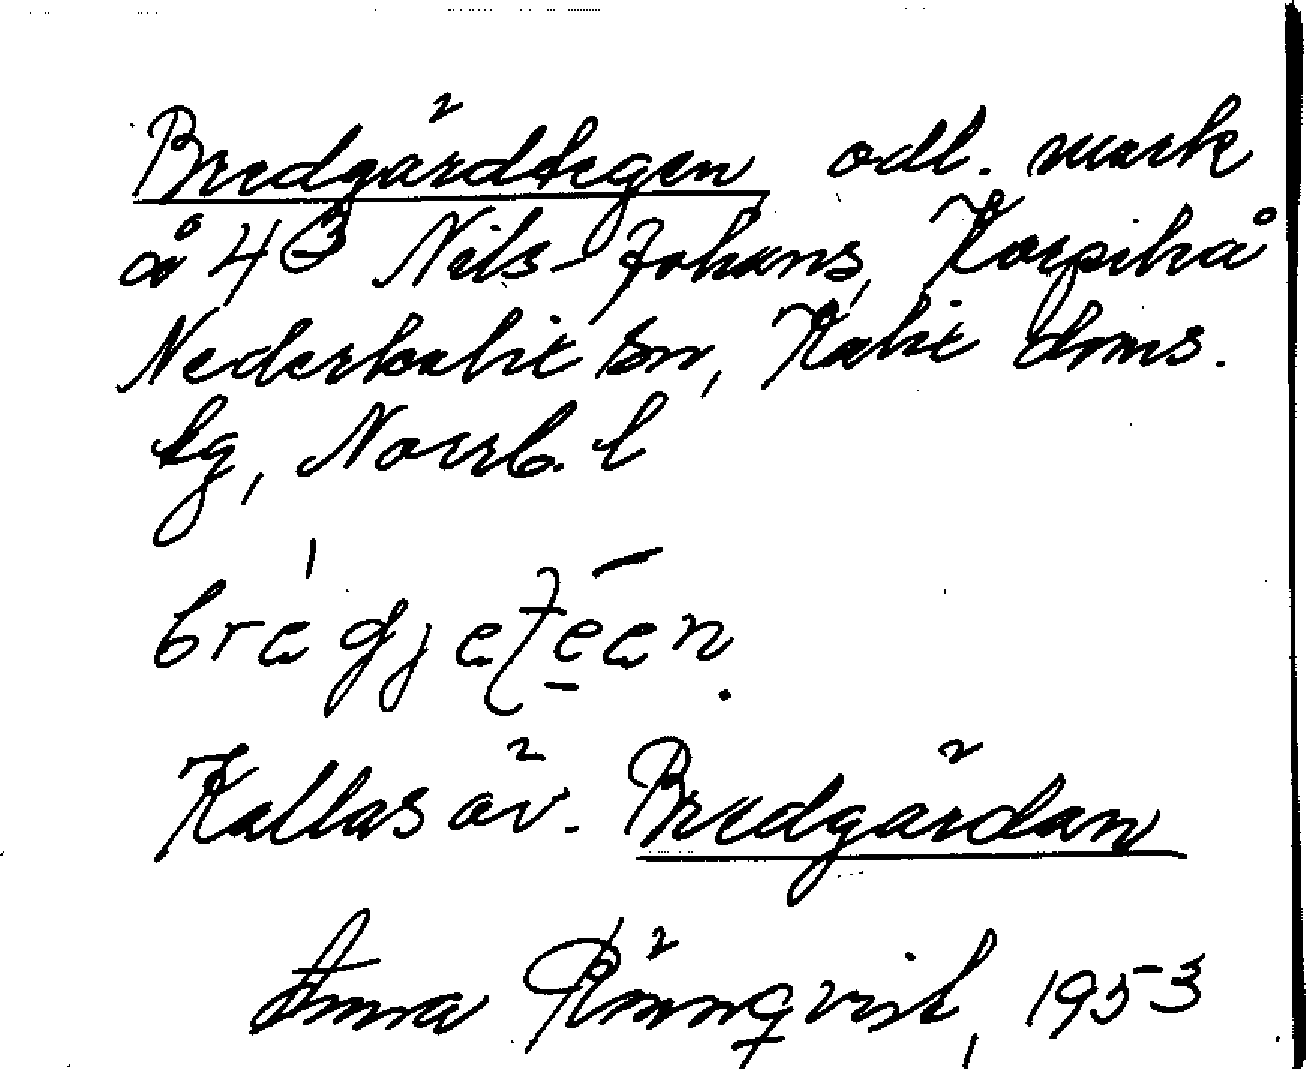 Bredgärdtegen odl. mark
å 4³ Nils-Johans, Korpikå
Nederkalix sn, Kalix doms.
tg, Norrb. l
Kallas äv. Bredgärdan
Anna Rönnqvist, 1953